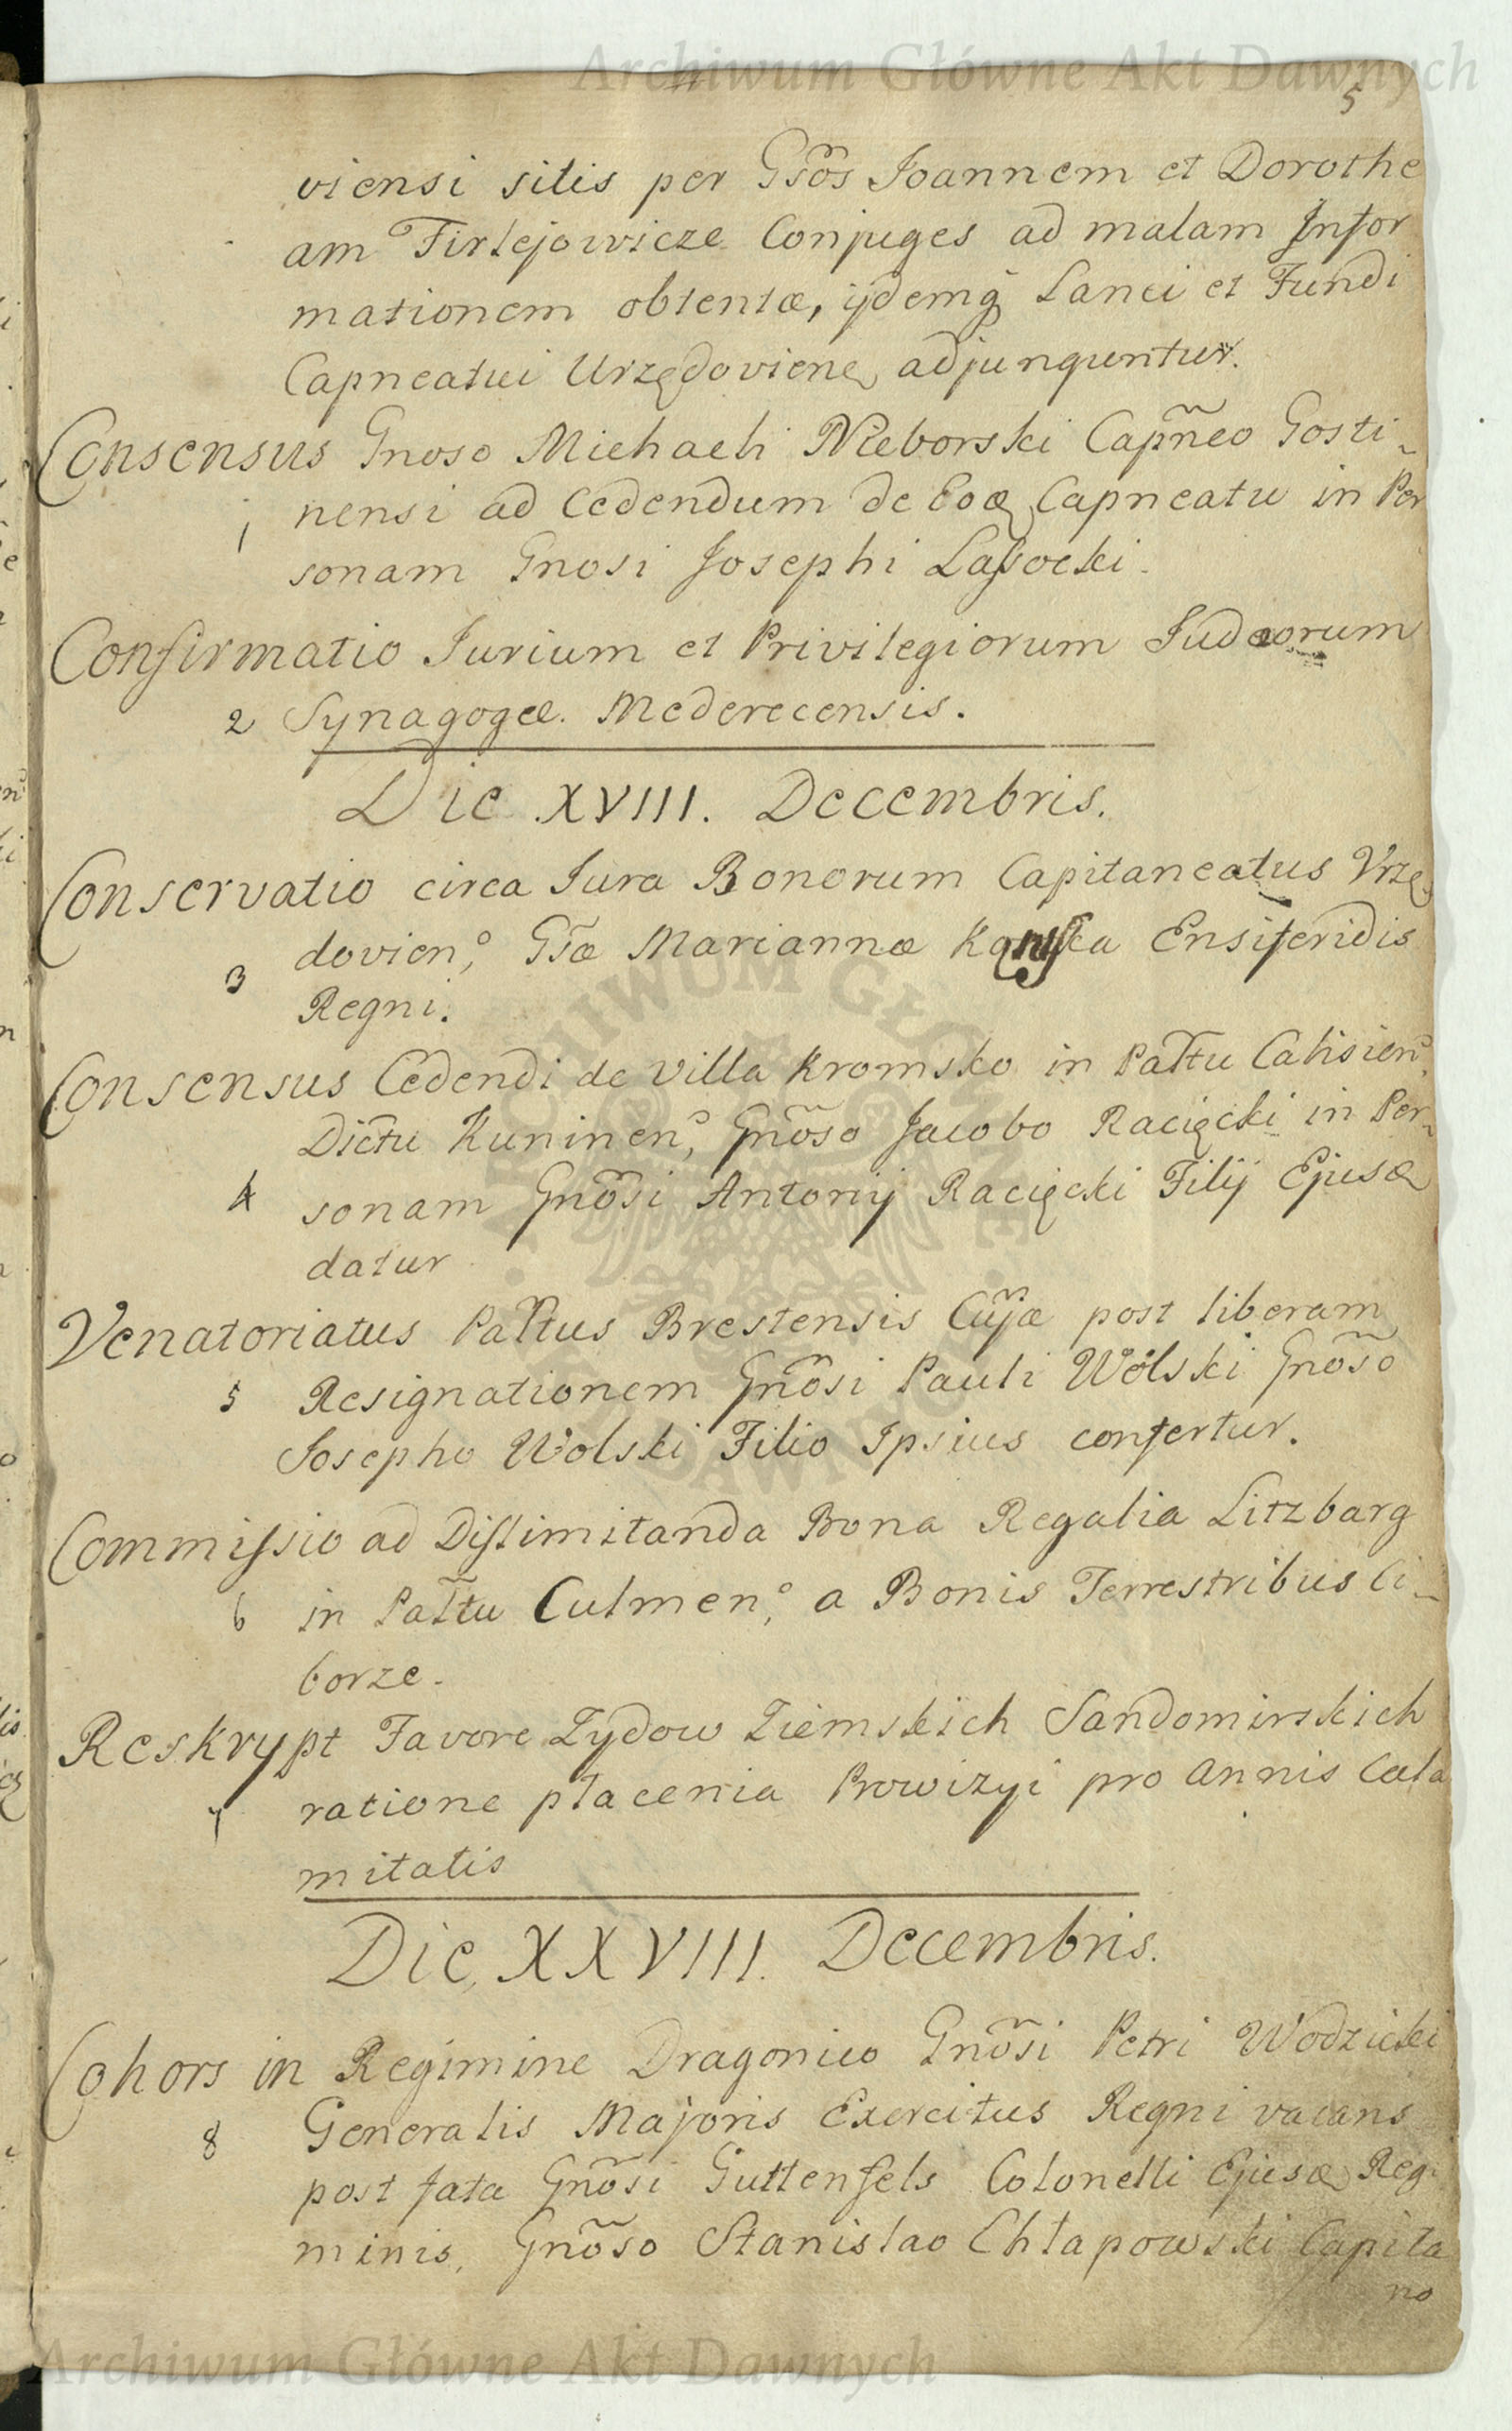 Archiwum Główne Akt Dawnych
5
viensi sitis per Gsõs Joannem et Dorothe
am Firlejowicze Conjuges ad malam Infor
mationem obtentæ, ijdemq̃ Lanei et Fundi
Capneatui Urzędoviene adjunguntur.
Consensus Gnoso Michaeli Nieborski Capñeo Gosti-
nensi ad Cedendum de Eoꝺ Capneatu in Per
1 sonam Gnosi Josephi Laſsocki.
Confirmatio Jurium et Privilegiorum Judæorum
2 Synagogæ. Mederecensis.
Die XVIII. Decembris.
Conservatio circa Jura Bonorum Capitaneatus Vrzę
dovien,° Gsæ Mariannæ Kąnska Ensiferidis
3 Regni.
Consensus Cedendi de Villa Kromsko in Pałtu Calisien,°
Dictu Kuninen,° Gnõso Jacobo Racięcki in Per-
4 sonam Gnõsi Antonij Racięcki Filij Ejusꝺ
datur
Venatoriatus Pałtus Brestensis Cujæ post liberam
5 Resignationem Gnõsi Pauli Wolski Gnõso
Josepho Wolski Filio Ipsius confertur.
Commiſsio ad Diſlimitanda Bona Regalia Litzbarg
6 in Pałtu Culmen,° a Bonis Terrestribus Ci-
borze.
Reskrypt Favore Zydow Ziemskich Sandomirskich
7 ratione płacenia Prowizyi pro Annis Cala
mitatis
Die, XXVIII. Decembris.
Cohors in Regimine Dragonico Gnõsi Petri Wodzicki
8 Generalis Majoris Exercitus Regni vacans
post fata Gnõsi Guttenfels Colonelli Ejusꝺ Regi
minis, Gnõso Stanislao Chłapowski Capita
no
Archiwum Główne Akt Dawnych